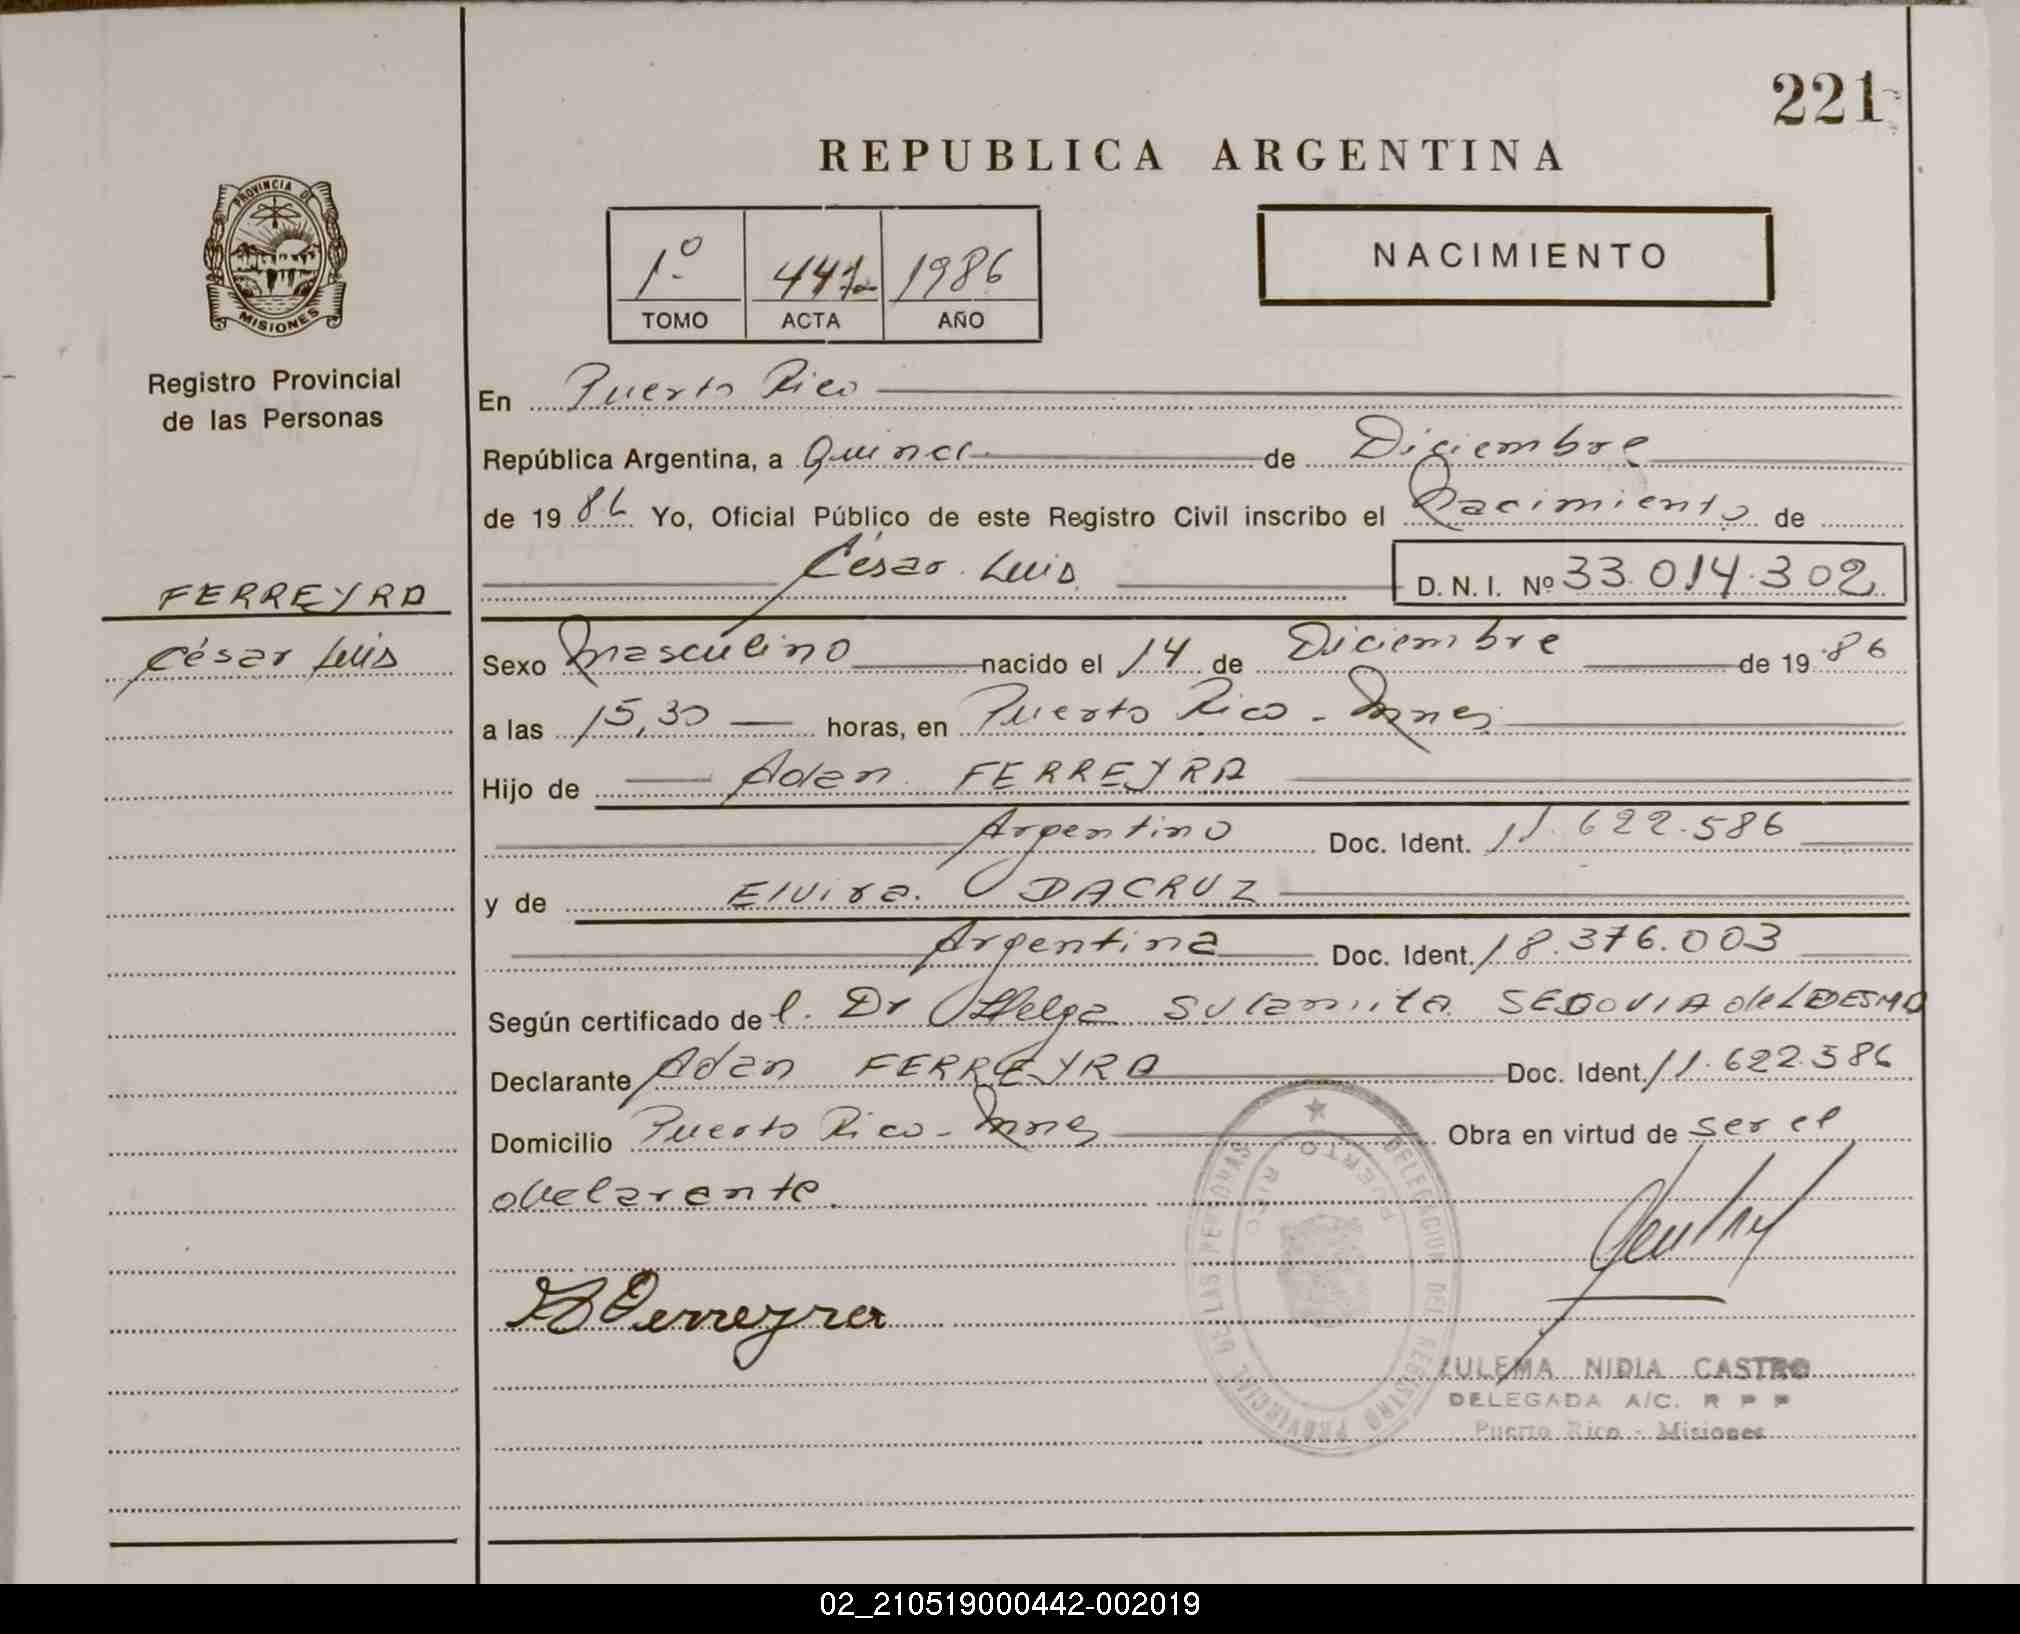 221
REPUBLICA ARGENTINA
PROVINCIA DE
MISIONES
Registro Provincial
de las Personas
1º 447 1986
TOMO ACTA AÑO
NACIMIENTO
En Puerto Rico
República Argentina, a Quince de Diciembre
de 1986 Yo, Oficial Público de este Registro Civil inscribo el Nacimiento de
César Luis D. N. I. Nº 33.014.302
FERREYRA
César Luis
Sexo Masculino nacido el 14 de Diciembre de 1986
a las 15,30 horas, en Puerto Rico - Mnes
Hijo de Adan FERREYRA
Argentino Doc. Ident. 11.622.586
y de Elvira DACRUZ
Argentina Doc. Ident. 18.376.003
Según certificado de l. Dr Helga Sulamita SEGOVIA de LEDESMA
Declarante Adan FERREYRA Doc. Ident. 11.622.586
Domicilio Puerto Rico - Mnes Obra en virtud de ser el
declarante.
DELEGACION DEL REGISTRO PROVINCIAL DE LAS PERSONAS
PUERTO RICO
Ferreyra
ZULEMA NIDIA CASTRO
DELEGADA A/C. R P P
Puerto Rico - Misiones
02_210519000442-002019